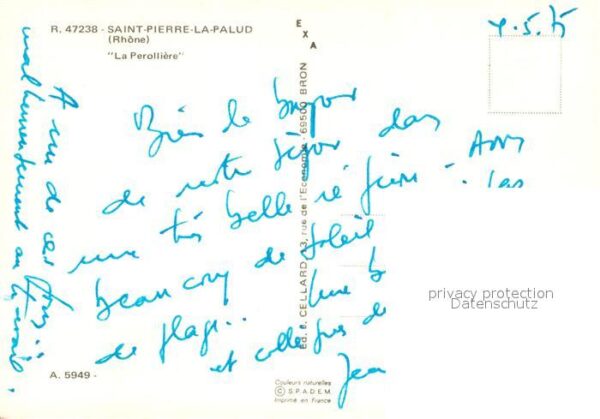 R. 47238 - SAINT-PIERRE-LA-PALUD
(Rhône)
"La Perollière"
EXA
4.5.75
Bien le bonjour
de notre séjour dans
une très belle région -
beaucoup de soleil
de plage..
et collègues de
Jean
A un de ces jours
malheureusement au travail.
Ed. E. CELLARD 43, rue de l'Economie - 69500 BRON
privacy protection
Datenschutz
A. 5949 -
Couleurs naturelles
© S.P.A.D.E.M.
Imprimé en France